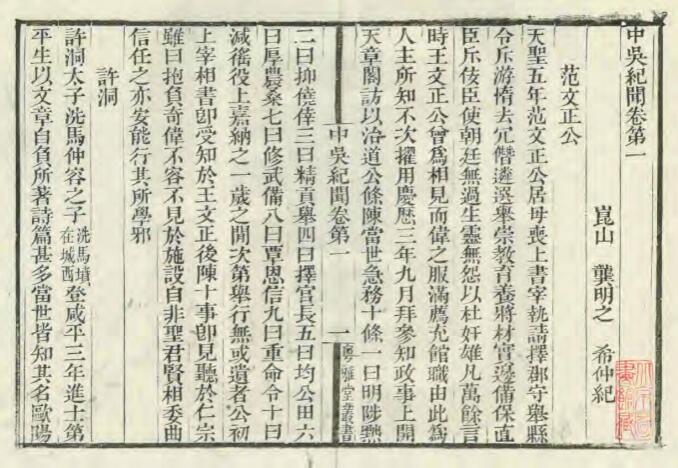 中吳紀聞卷第一
崑山　龔明之　希仲紀
范文正公
天聖五年范文正公居母喪上書宰執請擇郡守舉縣
令斥游惰去冗僭遴選舉崇教育養將材實邊備保直
臣斥佞臣使朝廷無過生靈無怨以杜奸雄凡萬餘言
時王文正公曾爲相見而偉之服滿薦充館職由此爲
人主所知不次擢用慶歷三年九月拜參知政事上開
天章閣訪以治道公條陳當世急務十條一曰明陟黜
中吳紀聞卷第一
一
粵雅堂叢書
二曰抑僥倖三曰精貢舉四曰擇官長五曰均公田六
曰厚農桑七曰修武備八曰覃恩信九曰重命令十曰
減徭役上嘉納之一歲之閒次第舉行無或遺者公初
上宰相書卽受知於王文正後陳十事卽見聽於仁宗
雖曰抱負奇偉不容不見於施設自非聖君賢相委曲
信任之亦安能行其所學邪
許洞
許洞太子洗馬仲容之子洗馬墳在城西登咸平三年進士第
平生以文章自負所著詩篇甚多當世皆知其名歐陽